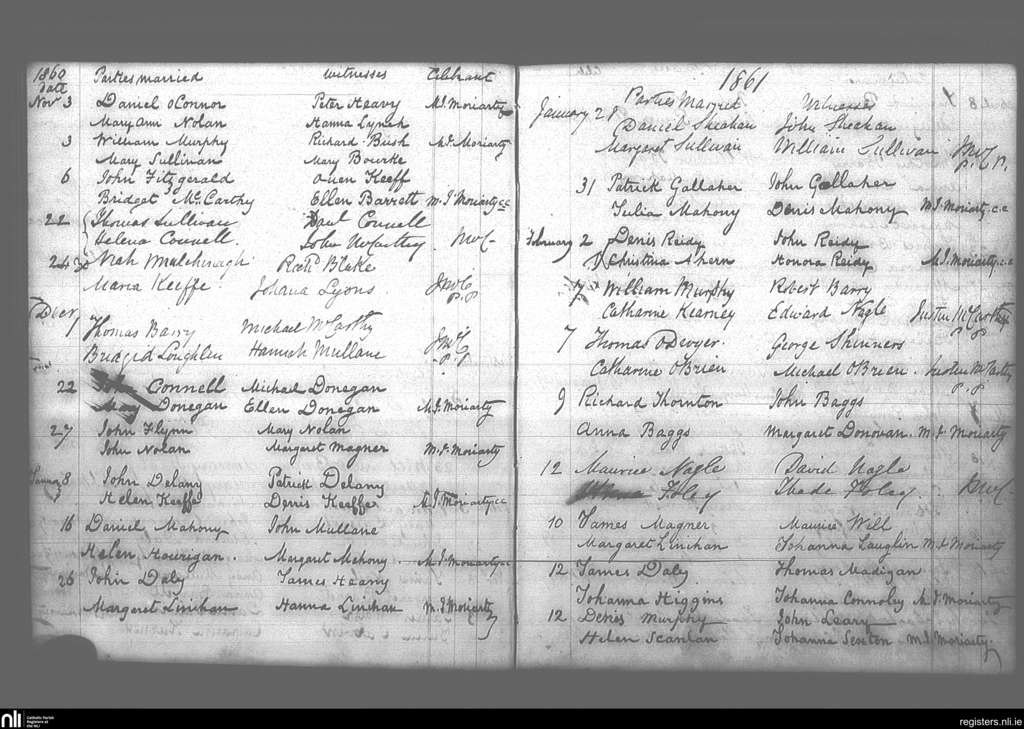 1860 Parties married Witnesses Celebrant
Date
Nov 3 Daniel OConnor Peter Heavy M.J. Moriarty
Maryann Nolan Hanna Lynch
3 William Murphy Richard Bush M.J. Moriarty
Mary Sullivan Mary Bourke
6 John Fitzgerald Owen Keeff
Bridget McCarthy Ellen Barrett M.J. Moriarty c.c
22 Thomas Sullivan Paul Connell
Helena Connell. John McCarthy. JMcC
24 Mulchinagh Blake
Maria Keeffe Johana Lyons. JMcC
P.P
Decr
1 Thomas Barry Michael McCarthy JMcC
Bridgid Loughlen Hannah Mullane P.P
22 Connell Michael Donegan
Mary Donegan Ellen Donegan M.J. Moriarty
27 John Flynn Mary Nolan
John Nolan Margaret Magner M.J. Moriarty
January 8 John Delany Patrick Delany
Helen Keeffe Denis Keeffe M.J. Moriarty cc
16 Daniel Mahony John Mullane
Helen Hourigan. Margaret Mahony M.J. Moriarty cc
26 John Daly James Heany
Margaret Linihan Hanna Linihan M.J. Moriarty
1861
Parties Married Witnesses
January 28 Daniel Sheahan John Sheahan
Margaret Sullivan William Sullivan JMcC P.P.
31 Patrick Gallaher John Gallaher
Julia Mahony Denis Mahony M.J. Moriarty c.c
February 2 Denis Reidy John Reidy
Christina Ahern Honora Reidy M.J. Moriarty c.c
7 William Murphy Robert Barry
Catharine Kearney Edward Nagle Justin McCarthy
P.P.
7 Thomas ODwyer. George Skinners
Catharine OBrien Michael OBrien. Justin McCarthy
P.P
9 Richard Thornton John Baggs
Anna Baggs Margaret Donovan. M.J. Moriarty
12 Maurice Nagle David Nagle
Foley Thade Foley. JMcC
10 James Magner Maurice Will
Margaret Linihan Johanna Laughlin M.J. Moriarty
12 James Daly Thomas Madigan
Johanna Higgins Johanna Connoley M.J. Moriarty
12 Denis Murphy John Leary
Helen Scanlan Johanna Sexton M.J. Moriarty
nli Catholic Parish
Registers at
the NLI
registers.nli.ie